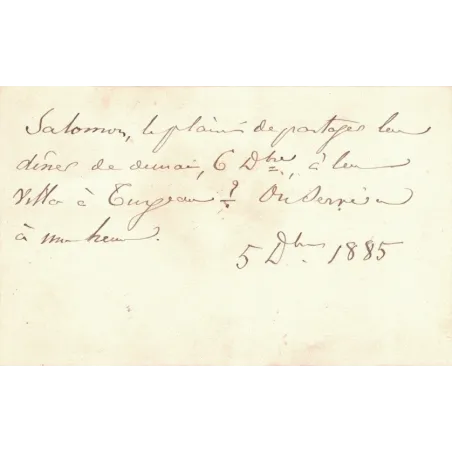 Salomon, le plaisir de partager leur
dîner de demain, 6 Dbre, à leur
Villa à Turgeau ? On servira
à une heure.
5 Dbre 1885